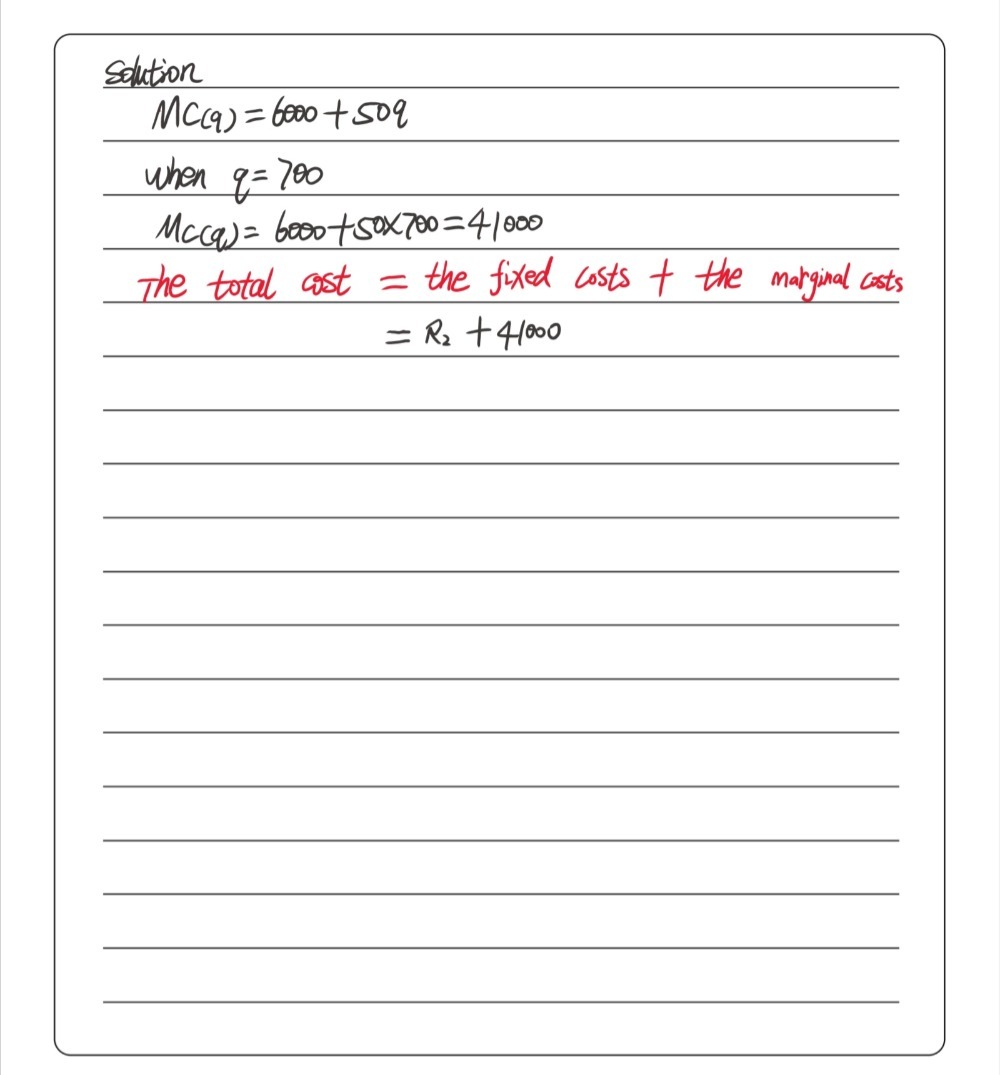 Solution
MC(q) = 6000 + 50q
when q = 700
MC(q) = 6000 + 50×700 = 41000
The total cost = the fixed costs + the marginal costs
= R₂ + 41000